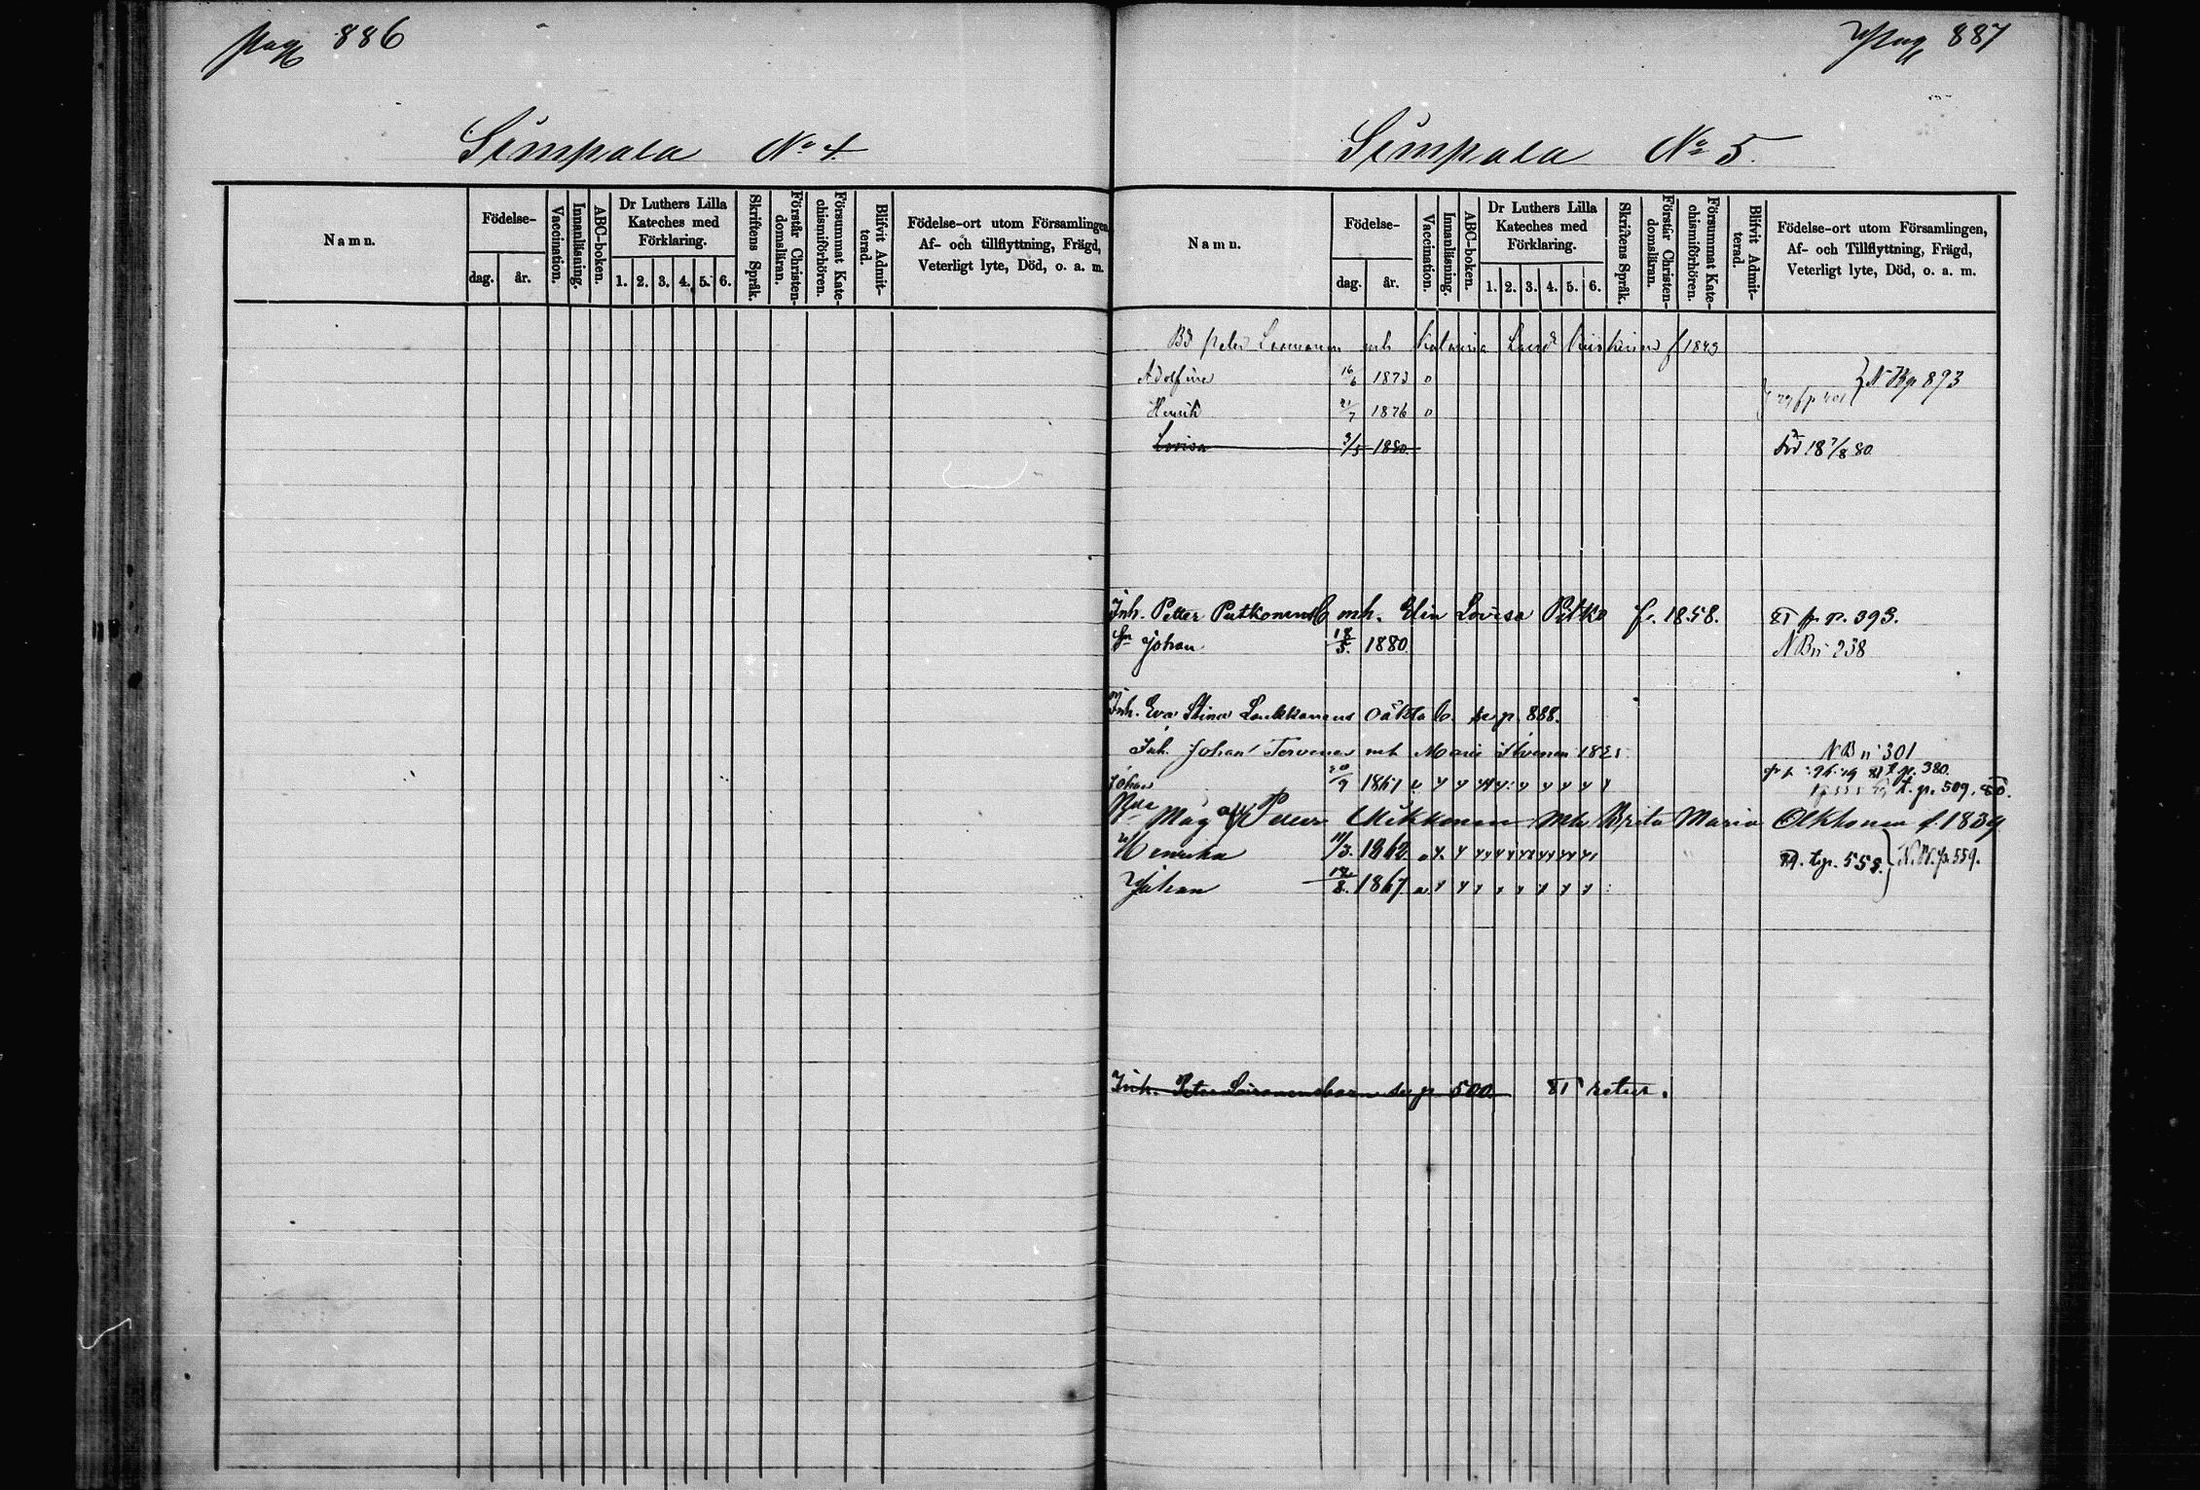 pag 886
Simpala No 4.
Namn.
Födelse-
dag. år.
Vaccination.
Innanläsning.
ABC-boken.
Dr Luthers Lilla
Kateches med
Förklaring.
1. 2. 3. 4. 5. 6.
Skriftens Språk.
Förstår Christen-
domsläran.
Försummat Kate-
chismiförhören.
Blifvit Admit-
terad.
Födelse-ort utom Församlingen,
Af- och tillflyttning, Frägd,
Veterligt lyte, Död, o. a. m.
Pag 887
Simpala No 5.
Namn.
Födelse-
dag. år.
Vaccination.
Innanläsning.
ABC-boken.
Dr Luthers Lilla
Kateches med
Förklaring.
1. 2. 3. 4. 5. 6.
Skriftens Språk.
Förstår Christen-
domsläran.
Försummat Kate-
chismiförhören.
Blifvit Admit-
terad.
Födelse-ort utom Församlingen,
Af- och Tillflyttning, Frägd,
Veterligt lyte, Död, o. a. m.
Bd Peter mh Katarina f 1849
Adolfina 16/6 1873 N Bp 893
Henrik 21/7 1876
Lovisa 3/5 1880 död 18 7/8 80
Inh. Petter Putkonens mh. Elin Lovisa Pitko f. 1858. 81 fr. p. 393.
Sn Johan 18/5. 1880 N B n 238
Inh. Eva Stina Laukkanens oäkta b. se p. 888.
Inh. Johan Tervonen mh Maria 1821 N B n 301
Johan 20/9 1861 t. p. 380.
t. p. 509. 80.
Mag Petter Mikkonen mh Brita Maria Olkkonen f. 1839
Henrika 11/3. 1862 t. p. 553. p. 559.
Johan 12/8. 1867
Inh. Peter barn se p. 500 81 retur.